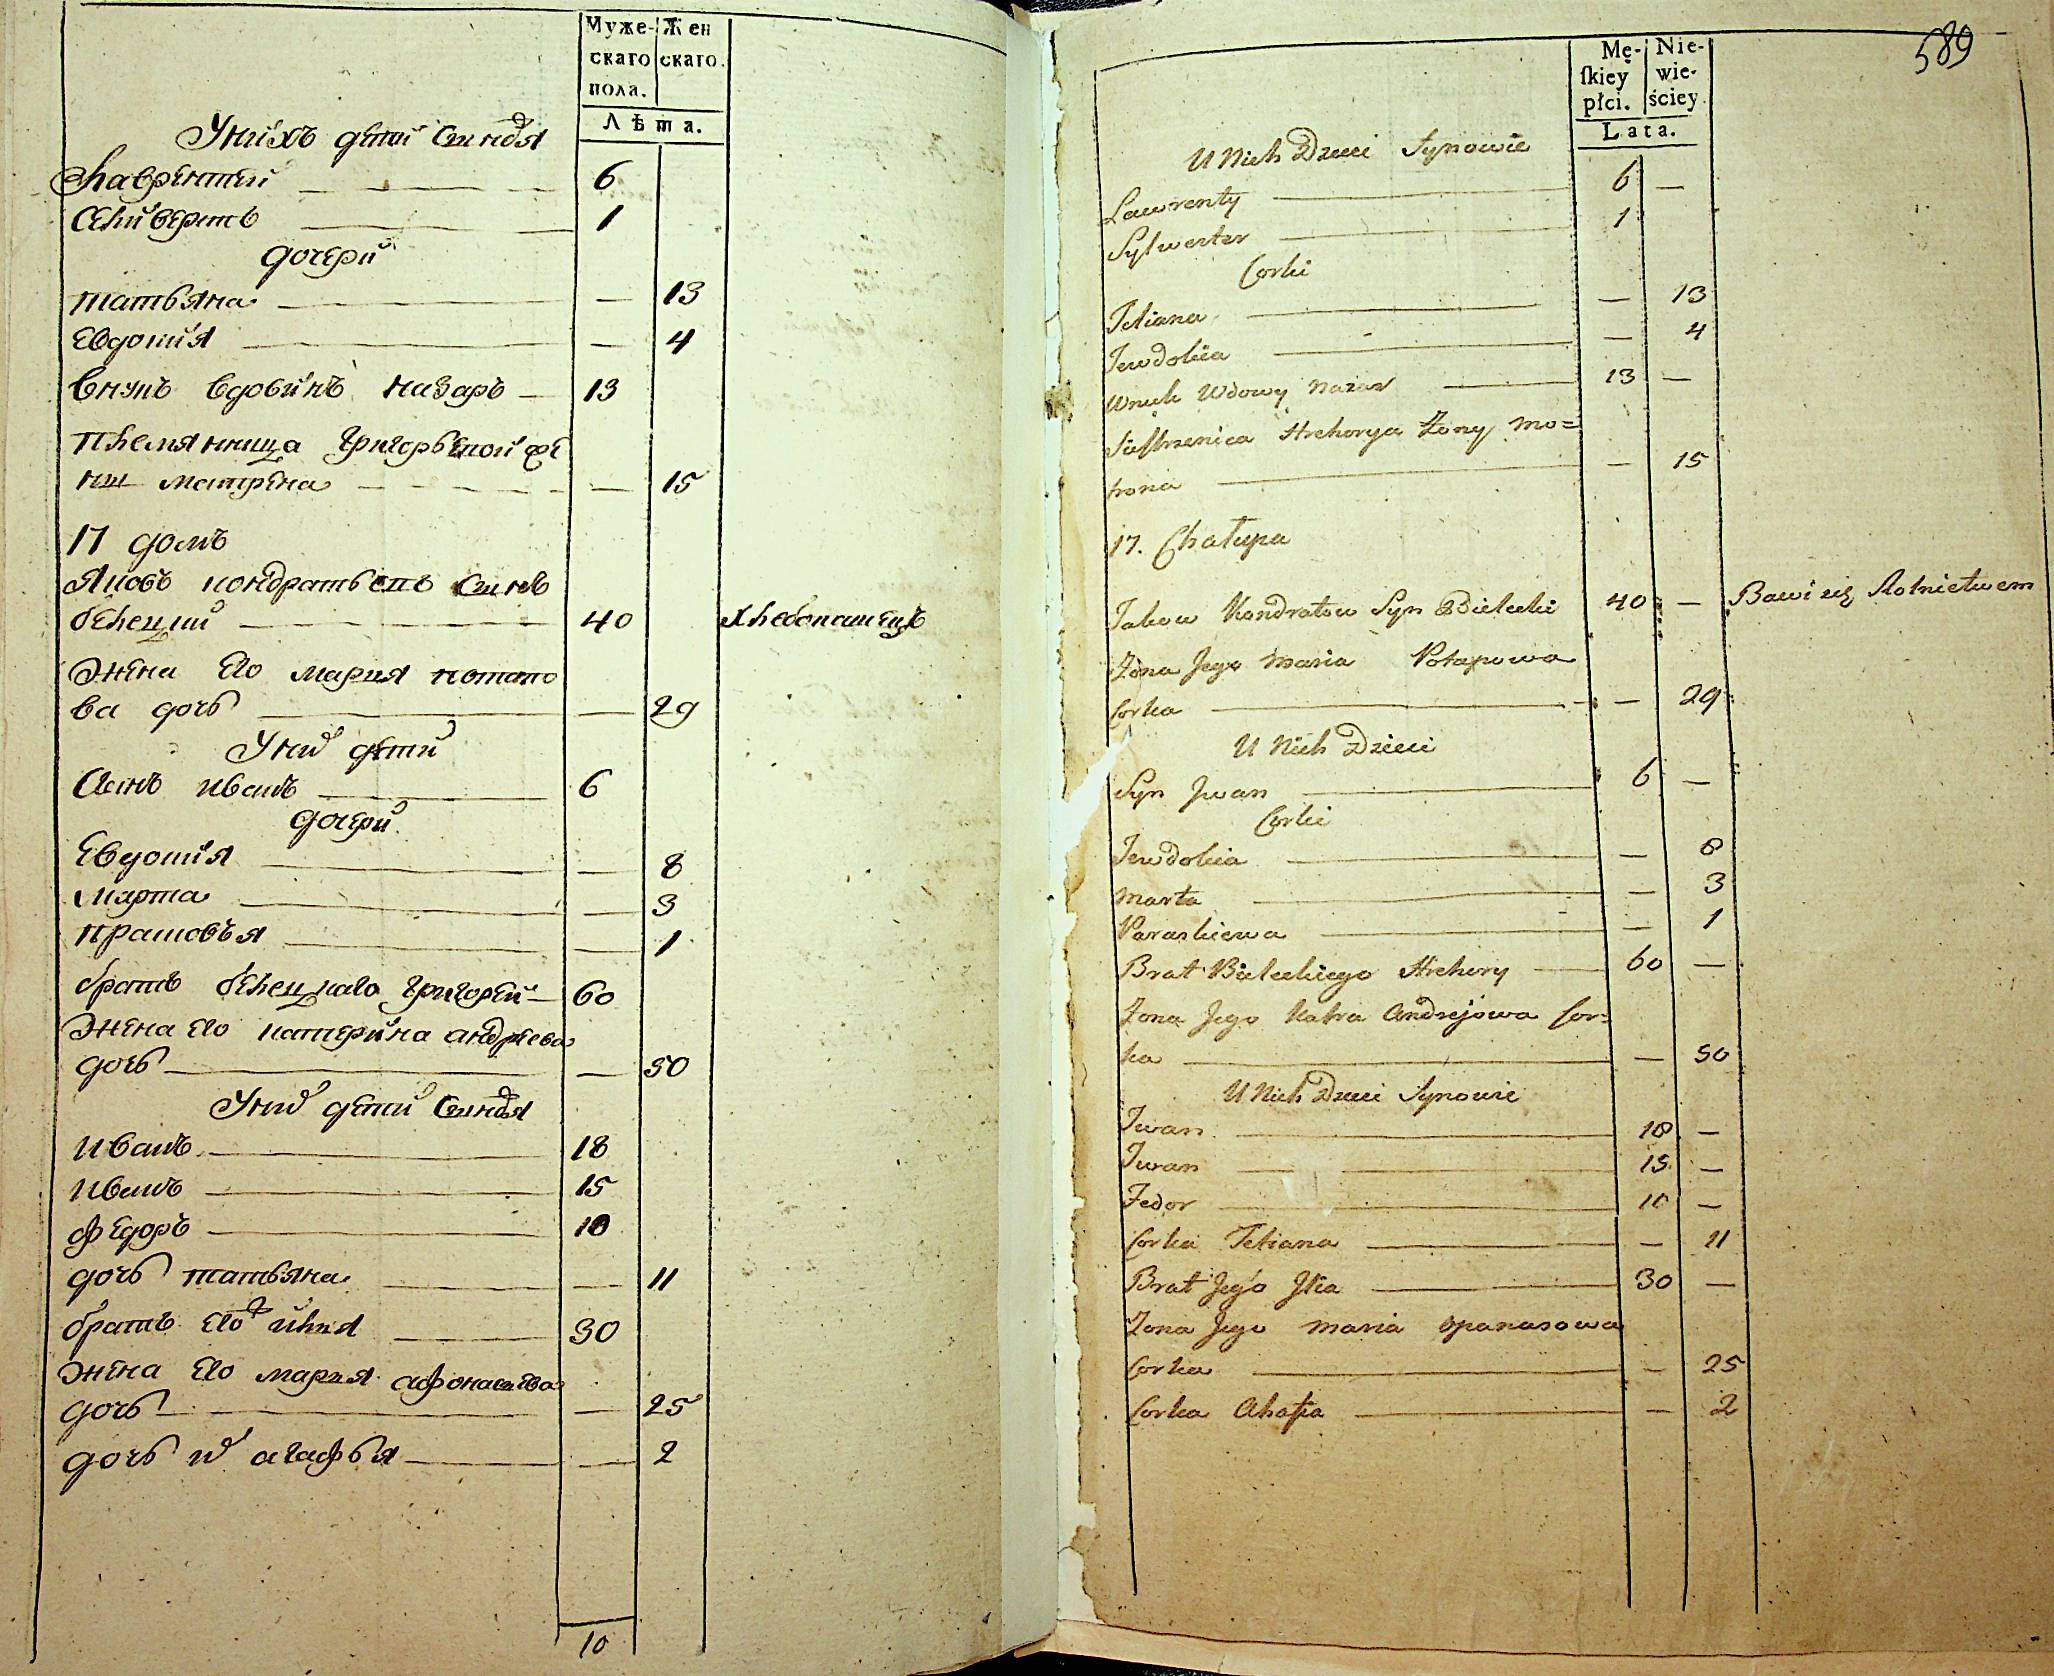 Муже-
скаго
пола.
Жен
скаго.
Лѣта.
У нихъ дети синовя
Лаврентий 6
Селиверстъ 1
дочери
татьяна — 13
Евдокия — 4
внукъ вдовинъ назаръ — 13
племянница григорьевой же
ны матрена — 15
17 домъ
Яковъ кондратьевъ синъ
белецкий 40 хлебопашецъ
Жена его мария потапо
ва дочь — 29
У них дети
Синъ иванъ 6
дочери
Евдокия — 8
Марта — 3
прасковъя — 1
братъ белецкаго григорей 60
Жена его катерина андреева
дочь — 50
У них дети синовя
иванъ 18
иванъ 15
федоръ 10
дочь татьяна — 11
братъ его илия 30
жена его мария афонасиева
дочь — 25
дочь их агафья — 2
10
589
Mę-
ſkiey
płci.
Nie-
wie-
ściey
Lata.
U Nich Dzieci Synowie
Lawrenty 6 —
Sylwester 1
Corki
Tetiana — 13
Jewdokia — 4
Wnuk Wdowy Nazar 13 —
Siestrzenica Hrehorya Żony Mo=
trona — 15
17. Chałupa
Jakow Kondratow Syn Bielecki 40 — Bawi się Rolnictwem
Żona Jego Maria Potapowa
Corka — 29
U Nich Dzieci
Syn Jwan 6 —
Corki
Jewdokia — 8
Marta — 3
Paraskiewa — 1
Brat Bieleckiego Hrehory 60 —
Żona Jego Katra Andrejowa Cor=
ka — 50
U Nich Dzieci Synowie
Iwan 18 —
Iwan 15 —
Fedor 10 —
Corka Tetiana — 11
Brat Jego Jlia 30 —
Żona Jego Maria Opanasowa
Corka — 25
Corka Ahafia — 2